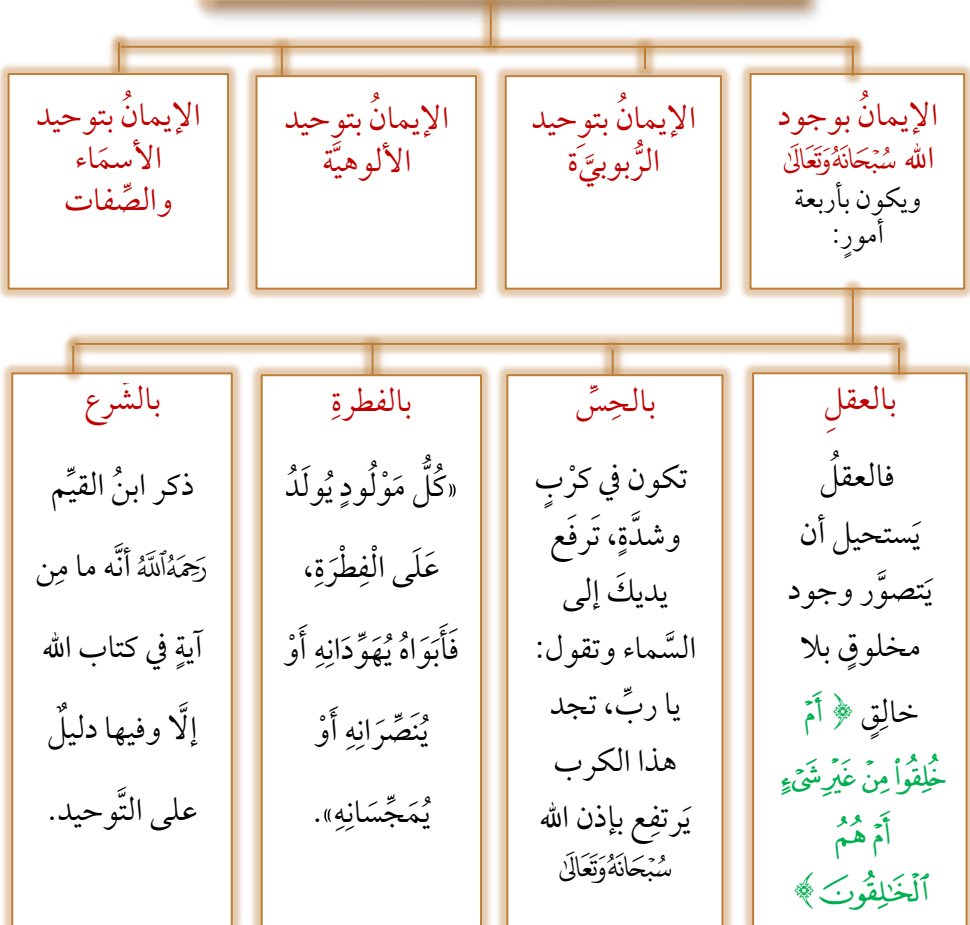 الإيمانُ بوجود
الله سُبْحَانَهُوَتَعَالَىٰ
ويكون بأربعة
أمورٍ:
الإيمانُ بتوحيد
الرُّبوبيَّة
الإيمانُ بتوحيد
الألوهيَّة
الإيمانُ بتوحيد
الأسمَاء
والصِّفات
بالعقلِ
فالعقلُ
يَستحيل أن
يَتصوَّر وجود
مخلوقٍ بلا
خالِقٍ ﴿ أَمۡ
خُلِقُواْ مِنۡ غَيۡرِ شَيۡءٍ
أَمۡ هُمُ
ٱلۡخَٰلِقُونَ ﴾
بالحِسِّ
تكون في كرْبٍ
وشدَّةٍ، تَرفَع
يديكَ إلى
السَّماء وتقول:
يا ربِّ، تجد
هذا الكرب
يَرتفِع بإذن الله
سُبْحَانَهُوَتَعَالَىٰ
بالفطرةِ
«كُلُّ مَوْلُودٍ يُولَدُ
عَلَى الْفِطْرَةِ،
فَأَبَوَاهُ يُهَوِّدَانِهِ أَوْ
يُنَصِّرَانِهِ أَوْ
يُمَجِّسَانِهِ».
بالشَّرع
ذكر ابنُ القيِّم
رَحِمَهُ ٱللَّهُ أنَّه ما مِن
آيةٍ في كتاب الله
إلَّا وفيها دليلٌ
على التَّوحيد.